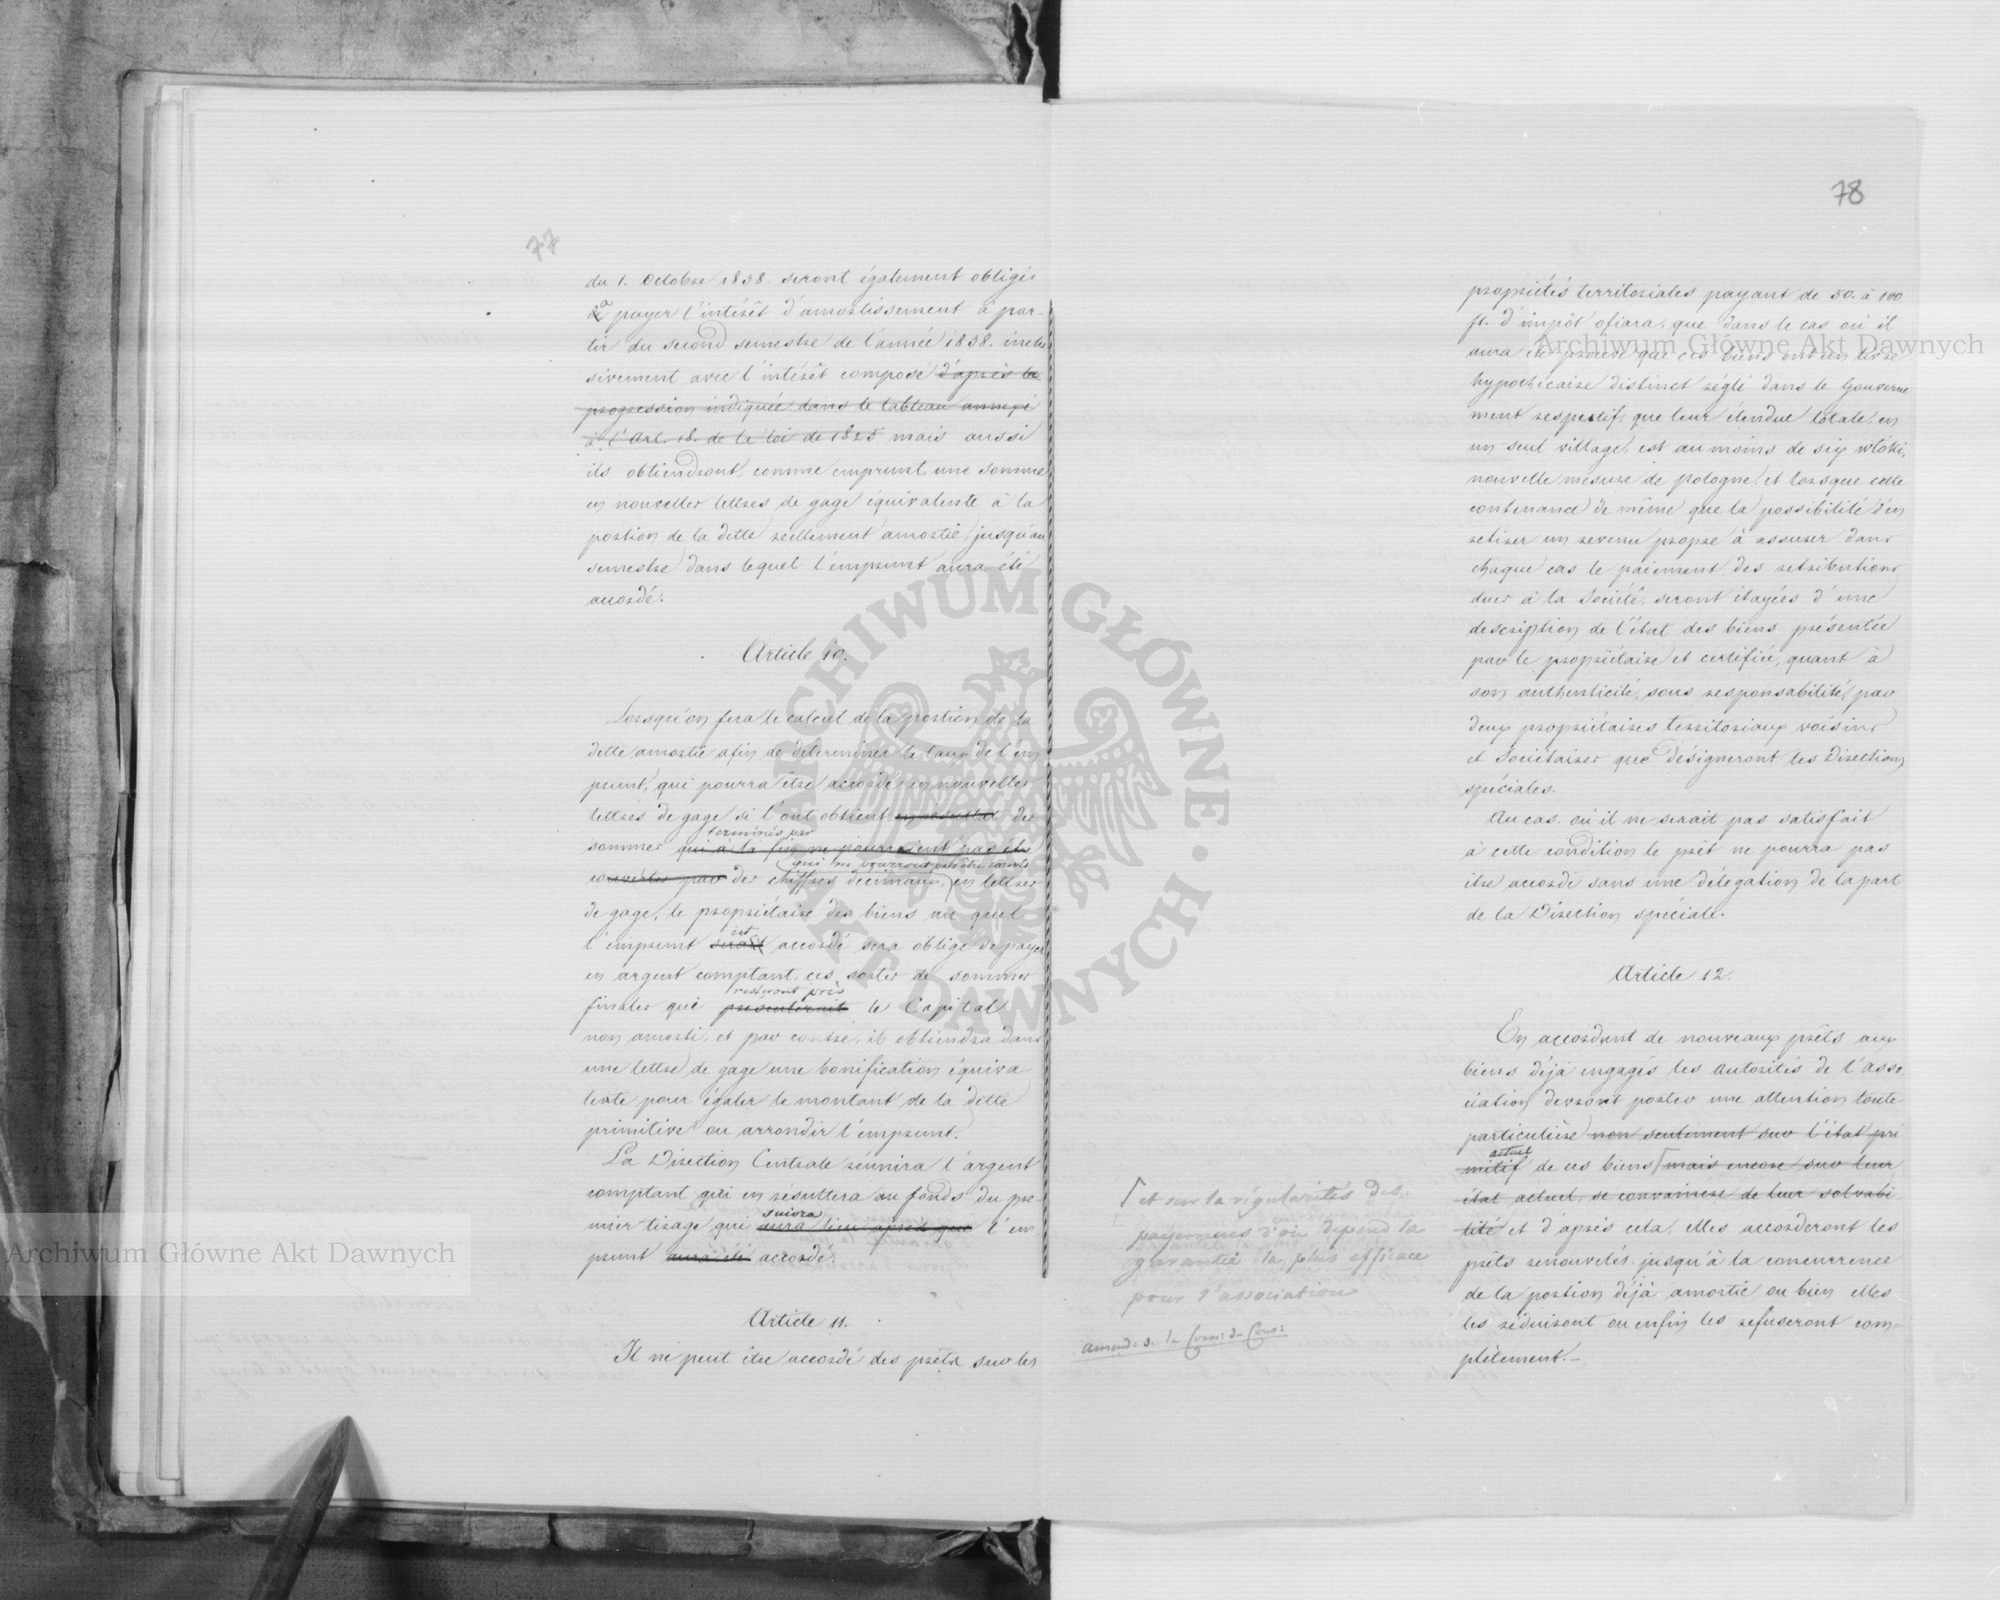 77
du 1. Octobre 1838. seront également obligés
à payer l'intérêt d'amortissement à par-
tir du second semestre de l'année 1838. inclu
sivement avec l'intérêt composé d'après la
progression indiquée dans le tableau annexé
à l'Art. 18. de la loi de 1825 mais aussi
ils obtiendront, comme emprunt une somme
en nouvelles lettres de gage équivalente à la
portion de la dette réellement amortie, jusqu'au
semestre dans lequel l'emprunt aura été
accordé.
Article 10.
Lorsqu'on fera le calcul de la portion de la
dette amortie afin de déterminer le taux de l'em
prunt, qui pourra être accordé en nouvelles
lettres de gage si l'ont obtient en résultat des
terminés par
sommes qui à la fin ne pourraient pas être
qui ne pourront pas être couverts
couvertes par des chiffres decimaux, en lettres
de gage, le propriétaire des biens au quel
est
l'emprunt serait accordé sera obligé de payer
en argent comptant, ces sortes de sommes
resteront près
finales que présenterait le Capital
non amorti, et par contre, il obtiendra dans
une lettre de gage une bonification équiva
lente pour égaler le montant de la dette
primitive ou arrondir l'emprunt.
La Direction Centrale réunira l'argent
comptant qui en résultera au fonds du pre-
suivra
mier tirage qui aura lieu après que l'em
prunt aura été accordé.
Article 11.
Il ne peut être accordé des prêts sur les
78
propriétés territoriales payant de 50. à 100
fl. d'impôt ofiara, que dans le cas où il
aura été prouvé que ces biens ont un livre
hypothécaire distinct réglé dans le Gouverne
ment respectif, que leur étendue totale, en
un seul village, est au moins de six włóki,
nouvelle mesure de pologne, et lorsque cette
contenance de même que la possibilité d'en
retirer un revenu propre à assurer dans
chaque cas le paiement des retributions
dues à la Société, seront étayées d'une
description de l'état des biens présentée
par le propriétaire et certifiée, quant à
son authenticité, sous responsabilité, par
deux propriétaires territoriaux voisins
et Sociétaires que désigneront les Directions
spéciales.
Au cas où il ne serait pas satisfait
à cette condition le prêt ne pourra pas
être accordé sans une délegation de la part
de la Direction spéciale.
Article 12.
En accordant de nouveaux prêts aux
biens déjà engagés les Autorités de l'asso
ciation devront porter une attention toute
particulière non seulement sur l'état pri
actuel
mitif de ces biens mais encore sur leur
état actuel, se convaincre de leur solvabi
lité et d'après cela, elles accorderont les
prêts renouvelés jusqu'à la concurrence
de la portion déjà amortie ou bien elles
les réduiront ou enfin les refuseront com-
plètement.-
et sur la régularités des
payements d'où depend la
garantie la plus efficace
pour l'association
amend: d. la Com: d. Cons:
Archiwum Główne Akt Dawnych
Archiwum Główne Akt Dawnych
ARCHIWUM GŁÓWNE AKT DAWNYCH